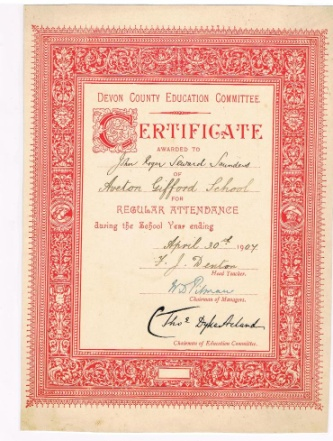 DEVON COUNTY EDUCATION COMMITTEE
CERTIFICATE
AWARDED TO
John Roger Steward Saunders
OF
Aveton Gifford School
FOR
REGULAR ATTENDANCE
during the School Year ending
April 30th 1907
F. J. Denton
Head Teacher.
W D Pitman
Chairman of Managers.
C Thos. Dyke Acland
Chairman of Education Committee.